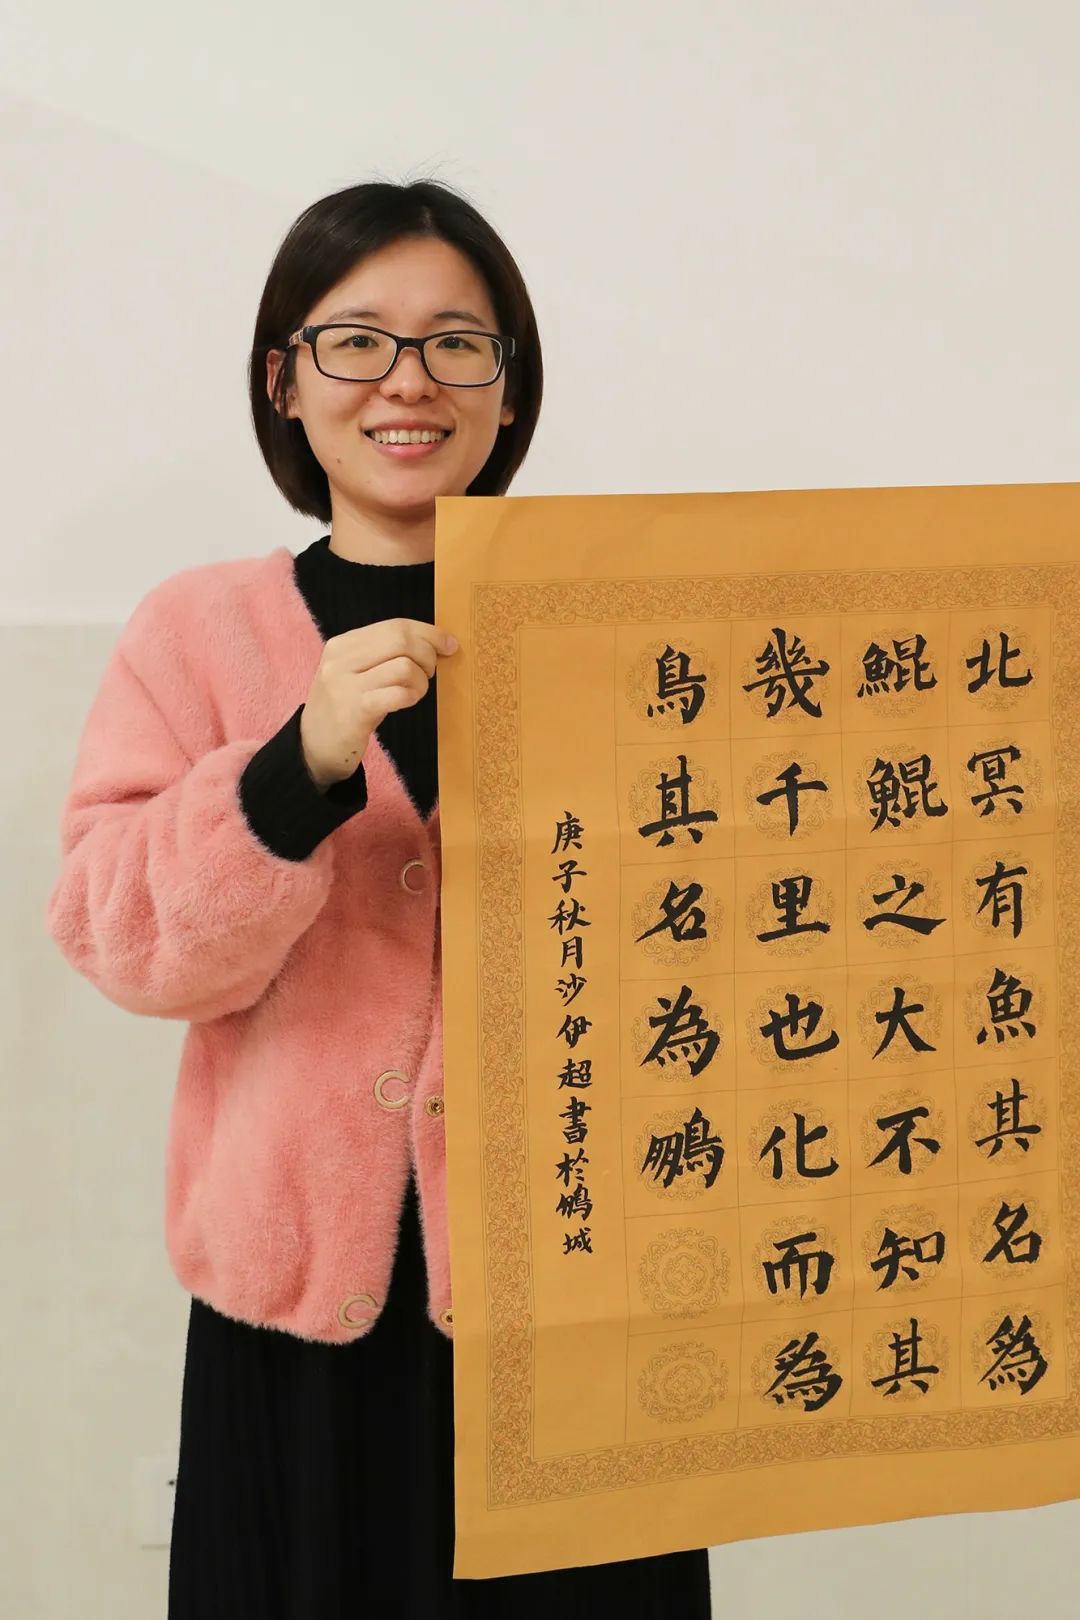 北冥有魚其名為
鯤鯤之大不知其
幾千里也化而為
鳥其名為鵬
庚子秋月沙伊超書於鵬城